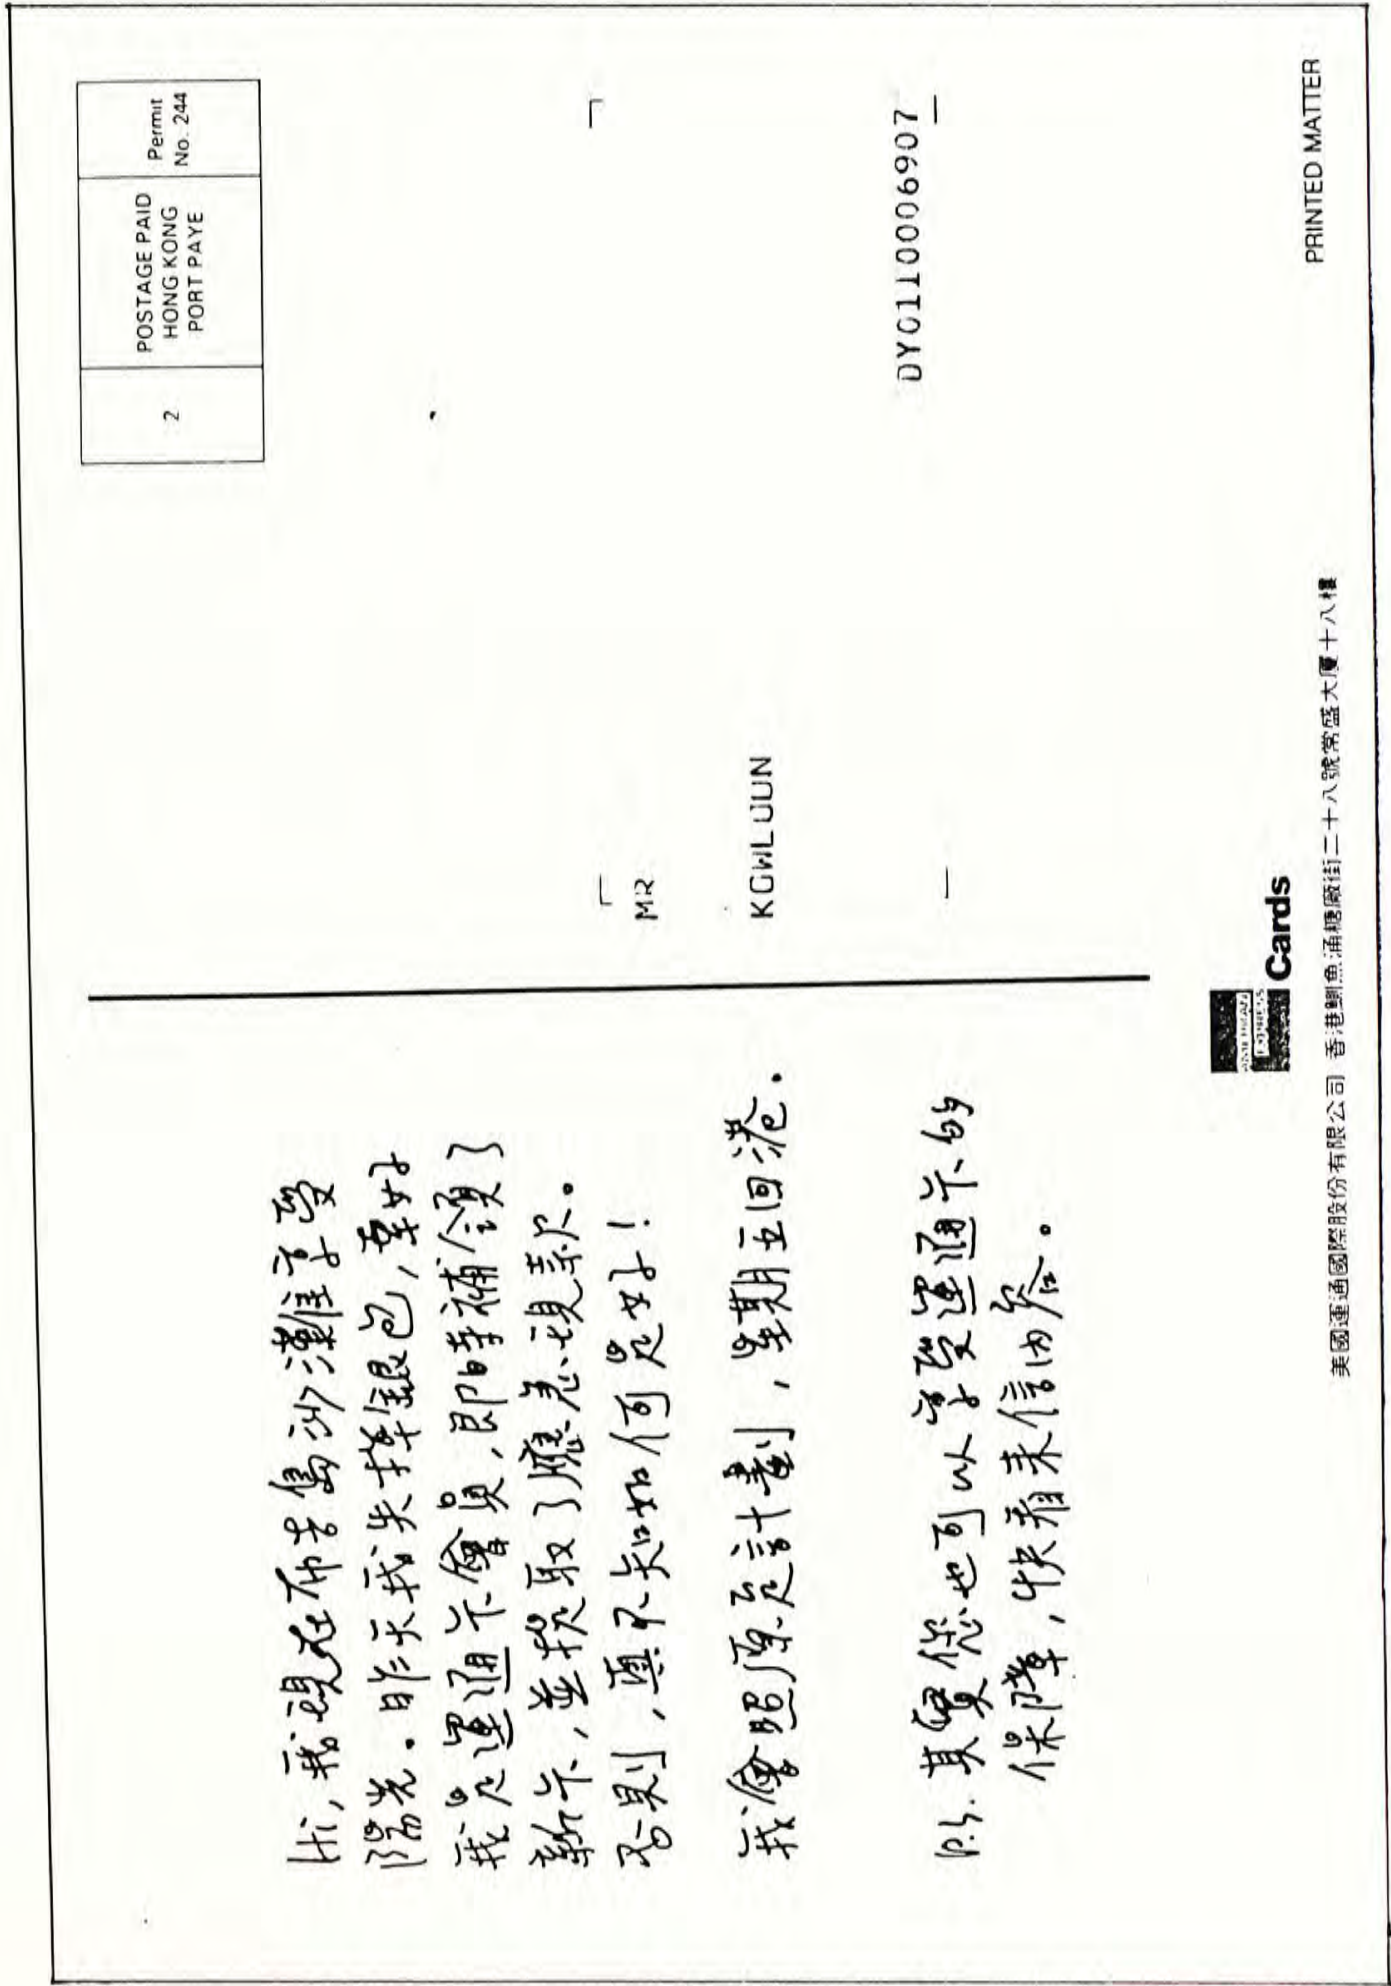 Hi, 我現在布吉島沙灘享受
陽光.昨天我失掉銀包,幸好
我是運通卡會員,即時補領了
新卡,並提取了應急現款。
否則,真不知如何是好!
我會照原定計劃,星期五回港.
P.S. 其實您也可以享受運通卡的
保障,快看来信內容。
2
POSTAGE PAID
HONG KONG
PORT PAYE
Permit
No. 244
MR
KOWLOON
DY0110006907
AMERICAN
EXPRESS
Cards
美國運通國際股份有限公司 香港鰂魚涌糖廠街二十八號常盛大廈十八樓
PRINTED MATTER